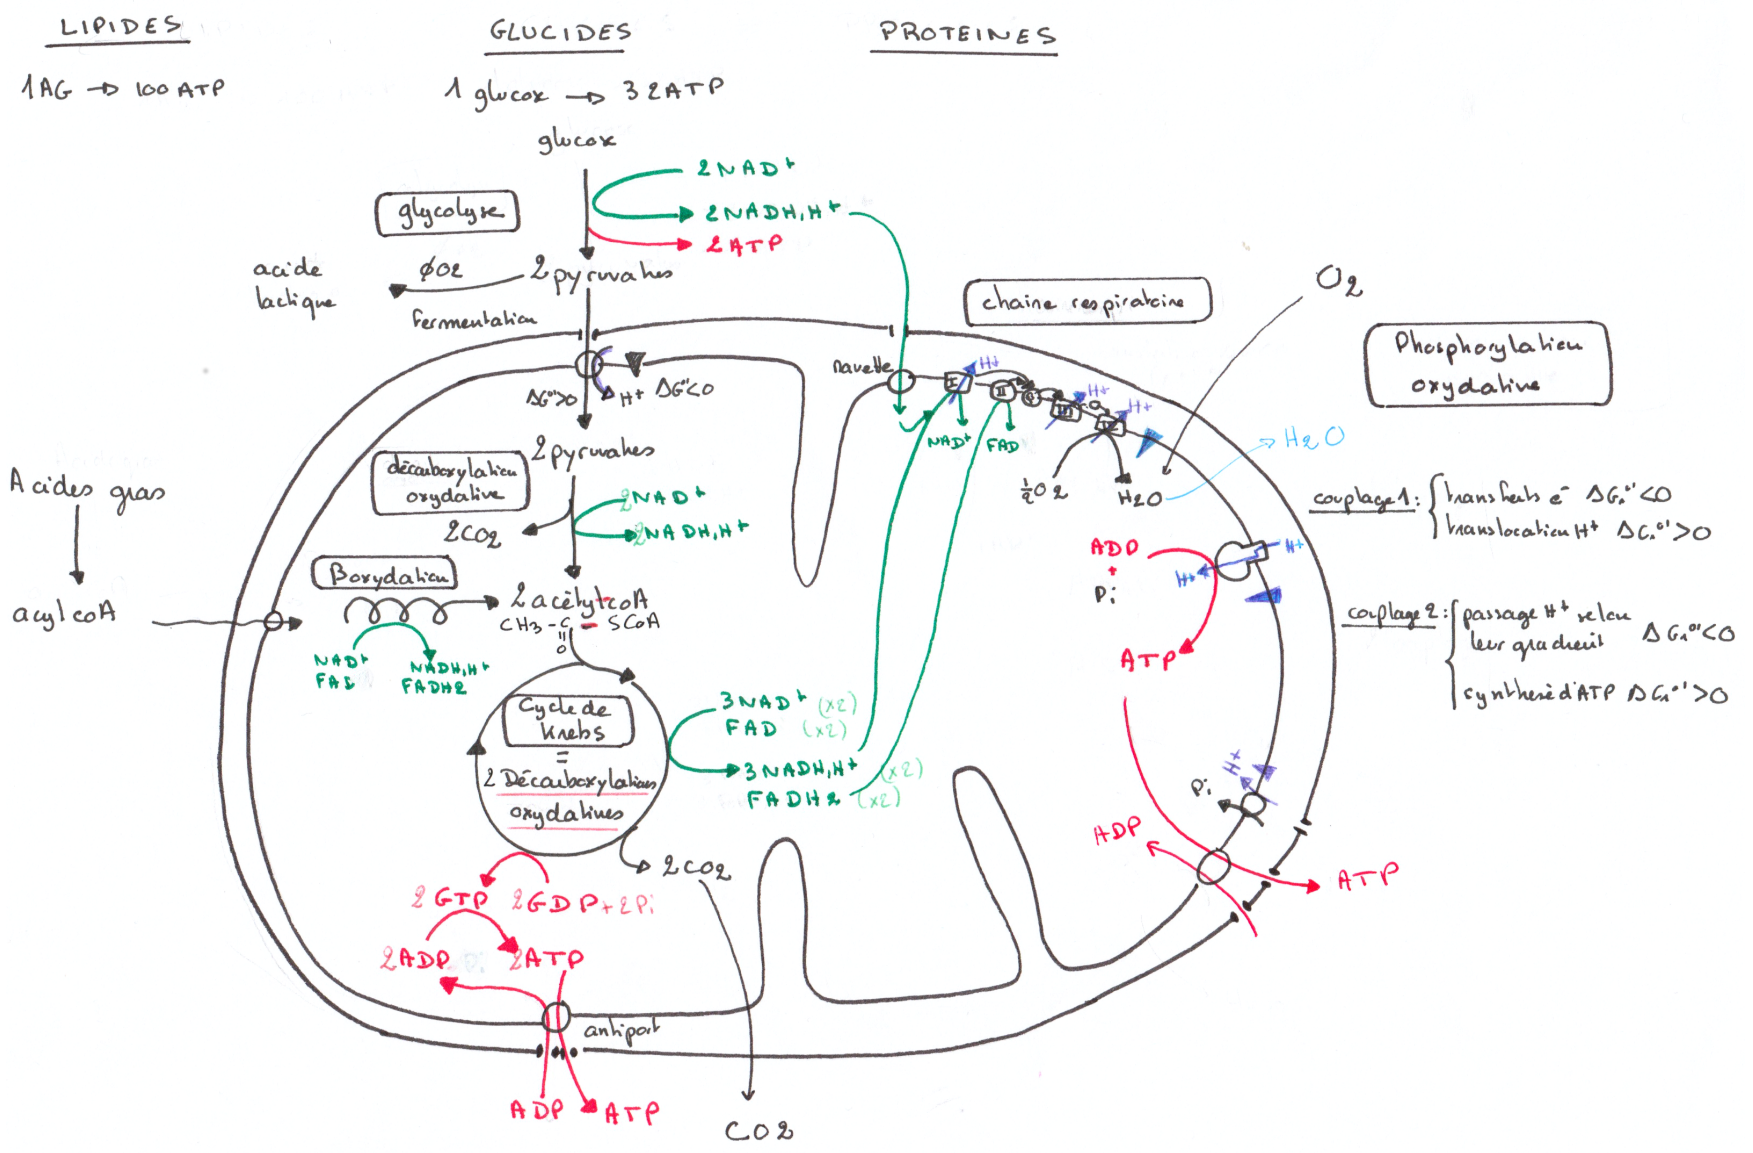 LIPIDES
GLUCIDES
PROTEINES
1AG → 100 ATP
1 glucose → 32ATP
glucose
2NAD+
glycolyse
2NADH,H+
2ATP
acide
lactique
ØO2
2 pyruvates
fermentation
chaine respiratoire
O2
Phosphorylation
oxydative
navette
H+
ΔG°'>0
H+
ΔG°'<0
I
II
III
IV
H+
H+
NAD+
FAD
H2O
½O2
H2O
2 pyruvates
décarboxylation
oxydative
2NAD+
2CO2
2NADH,H+
Acides gras
couplage 1 : transferts e- ΔGr°'<0
translocation H+ ΔGr°'>0
ADP
+
Pi
H+
H+
ATP
βoxydation
acylcoA
2 acétylcoA
CH3-C-SCoA
O
NAD+
FAD
NADH,H+
FADH2
couplage 2 : passage H+ selon
leur gradient ΔGr°'<0
synthèse d'ATP ΔGr°'>0
Cycle de
Krebs
=
2 Décarboxylations
oxydatives
3NAD+ (x2)
FAD (x2)
3NADH,H+ (x2)
FADH2 (x2)
H+
Pi
ADP
ATP
2CO2
2GTP
2GDP+2Pi
2ADP
Pi
2ATP
antiport
ADP
ATP
CO2